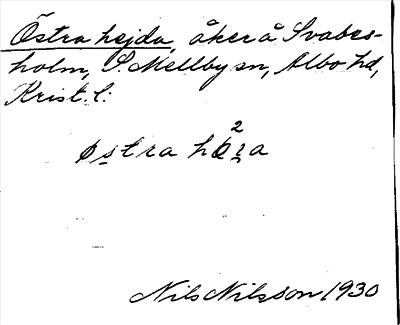 Östra hejda, åker å Svabes-
holm, S. Mellby sn, Albo hd,
Krist. l.
østra høꝛ²a
Nils Nilsson 1930